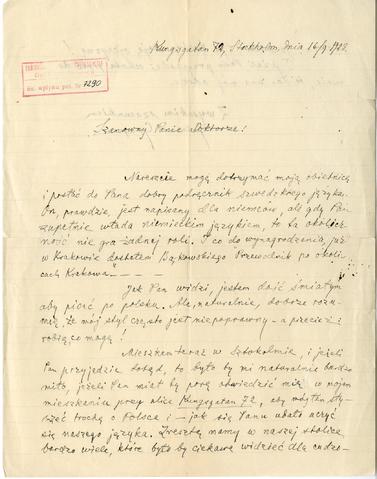 Kungsgatan 72, Stockholm, dnia 16/9 1928.
7290
Szanowny Panie Doktorze!
Nareszcie mogę dotrzymać moją obietnicę
i posłać do Pana dobry podręcznik szwedzkiego języka.
On, prawdzie, jest napisany dla niemców, ale gdy Pan
zupełnie włada niemieckim językiem, to ta okolicz-
ność nie gra żadnej roli. I co do wynagrodzenia, już
w Krakowie dostałem Bąkowskiego „Przewodnik po okoli-
cach Krakowa".
Jak Pan widzi, jestem dość śmiałym
aby pisać po polsku. Ale, naturalnie, dobrze rozu-
mię, że mój styl często jest niepoprawny - a przecież:
robię co mogę!
Mieszkam teraz w Sztokolmie, i jeżeli
Pan przyjedzie dotąd, to było by mi naturalnie bardzo
miło, jeżeli Pan miał by porę odwiedzić mię w mojem
mieszkaniu przy ulice Kungsgatan 72, aby mógłbym sły-
szeć trochę o Polsce i - jak się Panu udało uczyć
się naszego języka. Zresztą mamy w naszej stolice
bardzo wiele, które było by ciekawą widzieć dla cudzo-